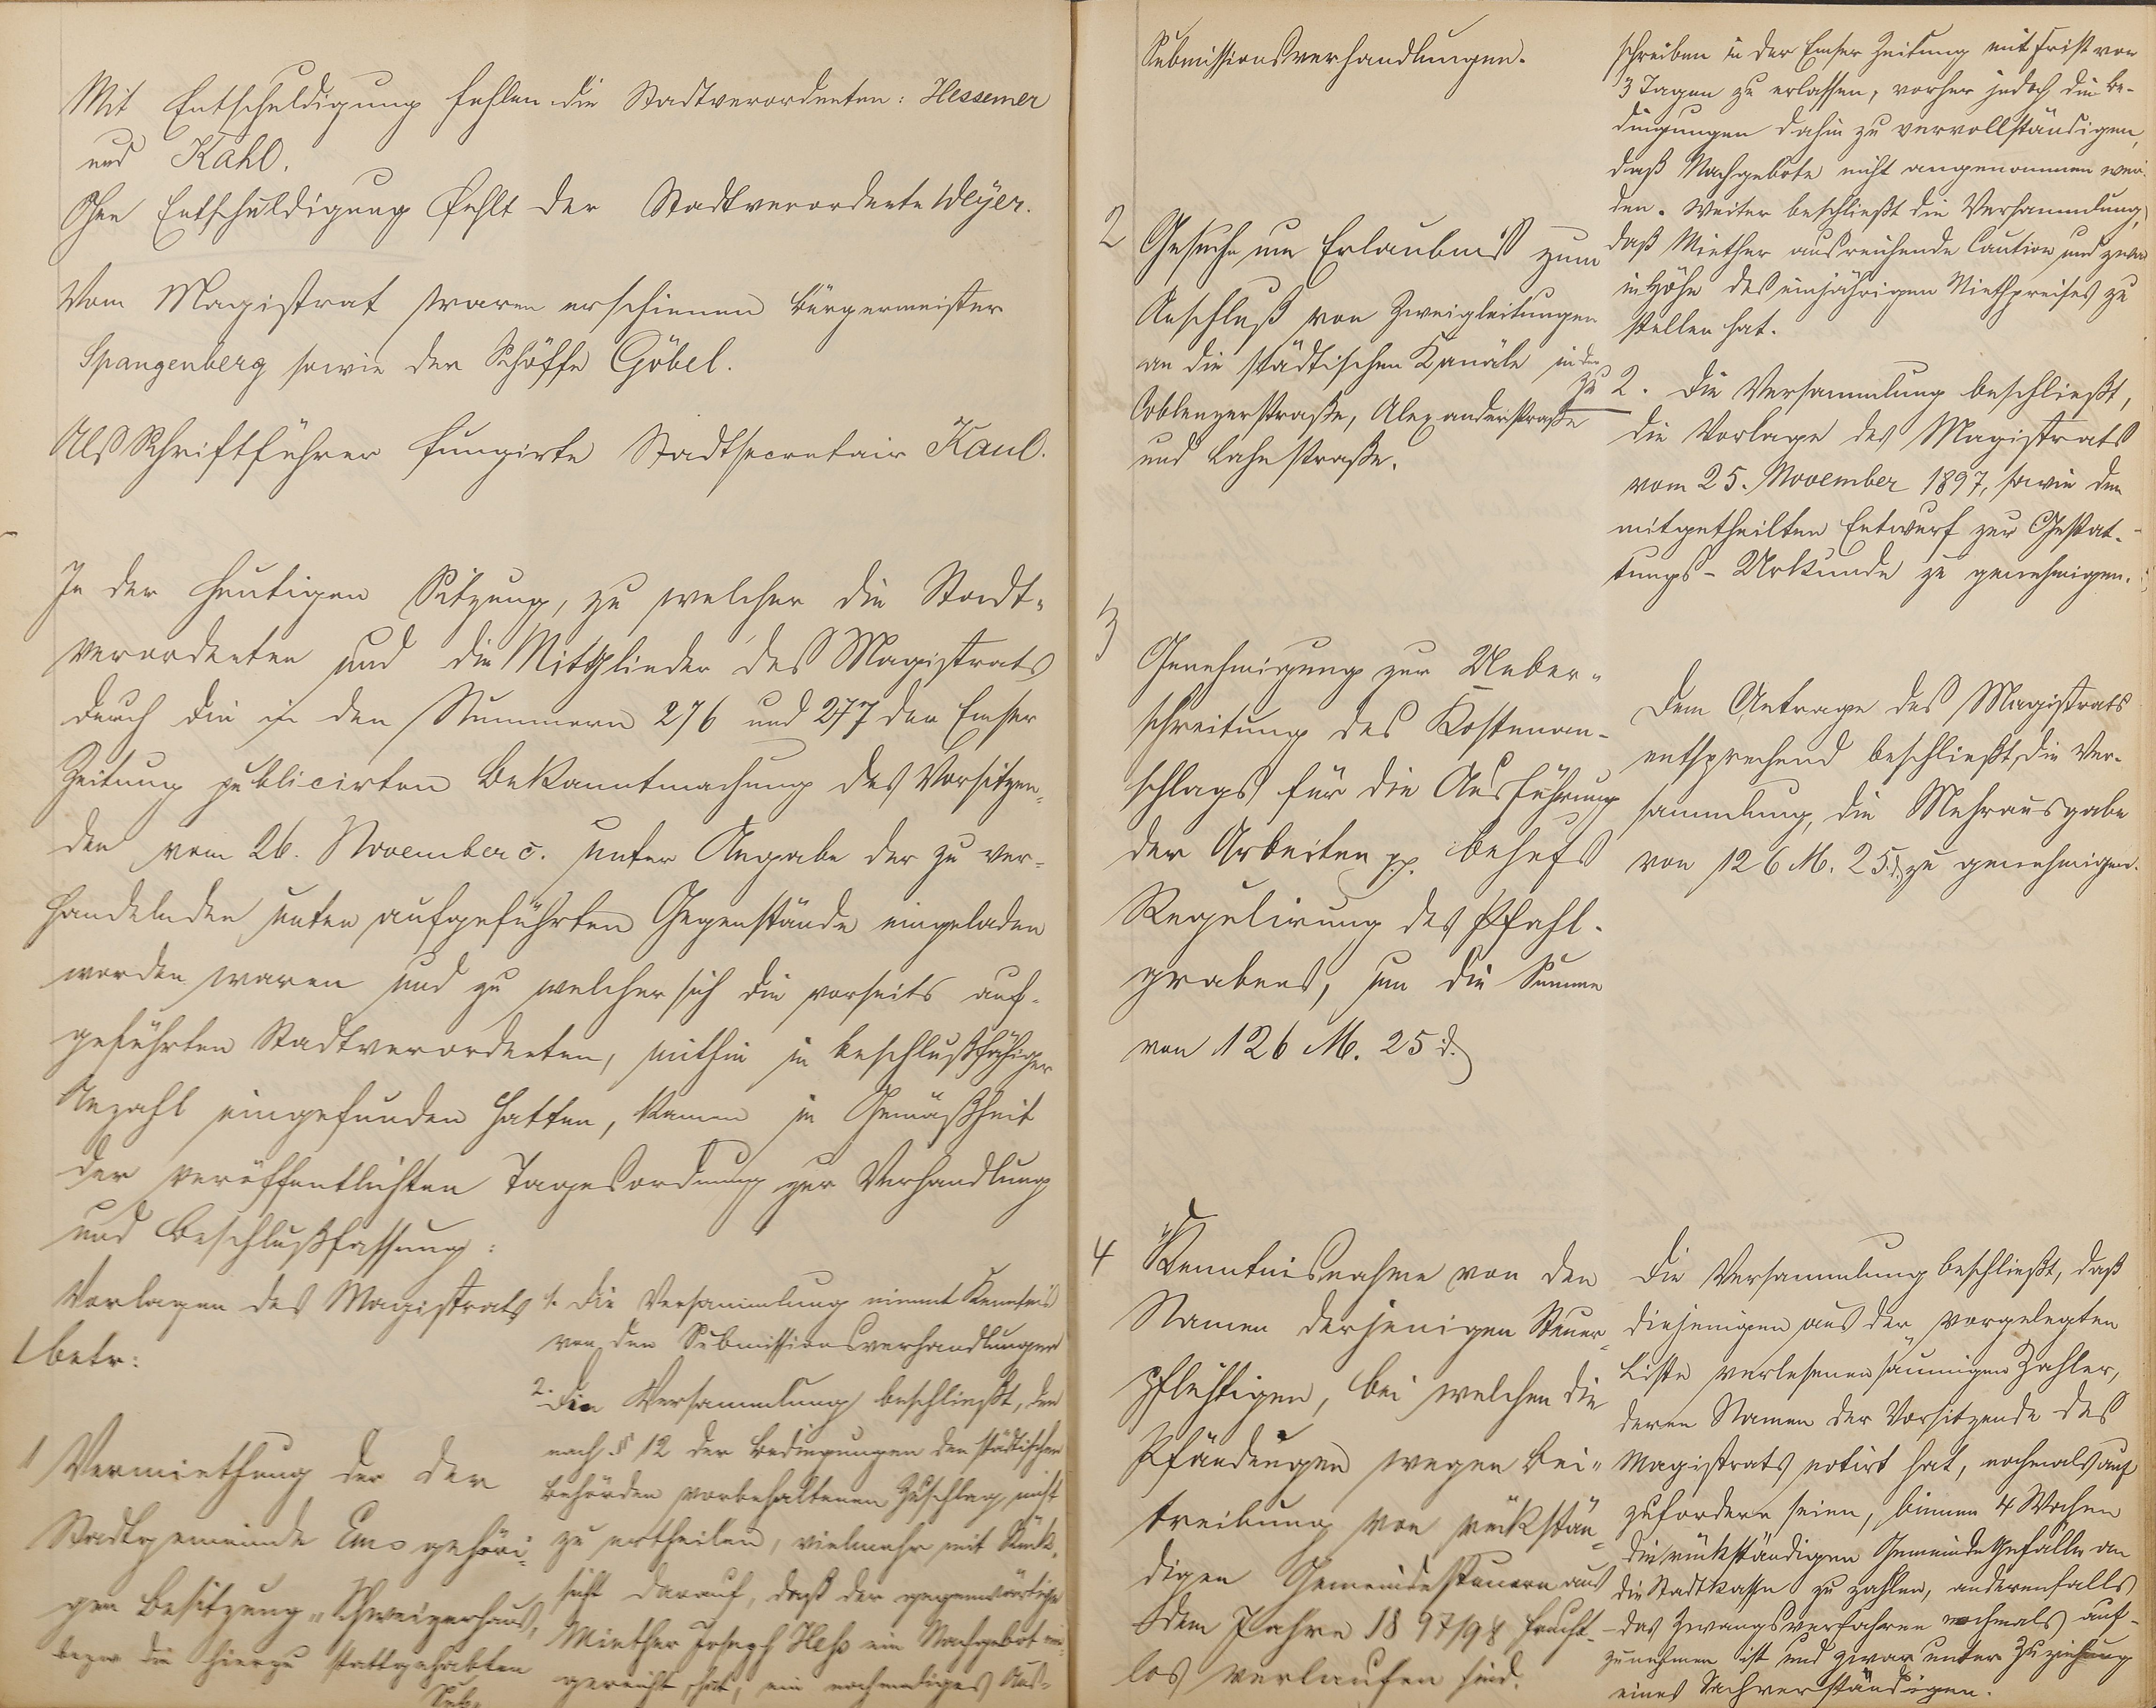 Mit Entschuldigung fehlen die Stadtverordneten: Hessemer
und Kahl.
Ohne Entschuldigung fehlt der Stadtverordnete Weyer.
Vom Magistrat waren erschienen Bürgermeister
Spangenberg sowie der Schöffe Göbel.
Als Schriftführer fungirte Stadtsecretair Kaul.
In der heutigen Sitzung, zu welcher die Stadt-
verordneten und die Mitglieder des Magistrats
durch die in den Nummern 276 und 277 der Emser
Zeitung publicirten Bekanntmachung des Vorsitzen-
den vom 26. November c. unter Angabe der zu ver-
handelnden unten aufgeführten Gegenstände eingeladen
worden waren und zu welcher sich die vorseits auf-
geführten Stadtverordneten, mithin in beschlußfähiger
Anzahl eingefunden hatten, kamen in Gemäßheit
der veröffentlichten Tagesordnung zur Verhandlung
und Beschlußfassung:
Vorlagen des Magistrats
1 betr:
1 Vermiethung der der
Stadtgemeinde Ems gehöri-
gen Besitzung "Schweizerhaus",
bezw. die hierzu stattgehabten
Sub-
1. Die Versammlung nimmt Kenntnis
von den Submissionsverhandlungen
2. Die Versammlung beschließt, den
nach § 12 der Bedingungen den städtischen
Behörden vorbehaltenen Zuschlag, nicht
zu ertheilen, vielmehr mit Rück-
sicht darauf, daß der gegenwärtige
Miether Joseph Heß ein Nachgebot ein-
gereicht hat, ein nochmaliges Aus-
Submissionsverhandlungen.
2 Gesuche um Erlaubniß zum
Anschluß von Zweigleitungen
an die städtischen Kanäle in der
Coblenzerstraße, Alexanderstraße
und Lahnstraße.
3
Genehmigung zur Ueber-
schreitung des Kostenan-
schlags für die Ausführung
der Arbeiten pp. behufs
Regulirung des Pfahl-
grabens, um die Summe
von 126 M. 25 d.
4 Kenntnisnahme von den
Namen derjenigen Steuer-
pflichtigen, bei welchen die
Pfändungen wegen Bei-
treibung von rückstän-
digen Gemeindesteuern aus
dem Jahre 1897/98 frucht-
los verlaufen sind.
schreiben in der Emser Zeitung mit Frist von
3 Tagen zu erlassen, vorher jedoch die Be-
dingungen dahin zu vervollständigen,
daß Nachgebote nicht angenommen wer-
den. Weiter beschließt die Versammlung,
daß Miether ausreichende Caution und zwar
in Höhe des einjährigen Miethpreises zu
stellen hat.
zu 2. Die Versammlung beschließt,
die Vorlage des Magistrats
vom 25. November 1897, sowie den
mitgetheilten Entwurf zur Gestat-
tungs-Urkunde zu genehmigen.
Dem Antrage des Magistrats
entsprechend beschließt die Ver-
sammlung, die Mehrausgabe
von 126 M. 25 d. zu genehmigen.
Die Versammlung beschließt, daß
diejenigen aus der vorgelegten
Liste verlesenen säumigen Zahler,
deren Namen der Vorsitzende des
Magistrats notirt hat, nochmals auf
zufordern seien, binnen 4 Wochen
die rückständigen Gemeindegefälle an
die Stadtkasse zu zahlen, anderenfalls
das Zwangsverfahren nochmals auf-
zunehmen ist und zwar unter Zuziehung
eines Sachverständigen.